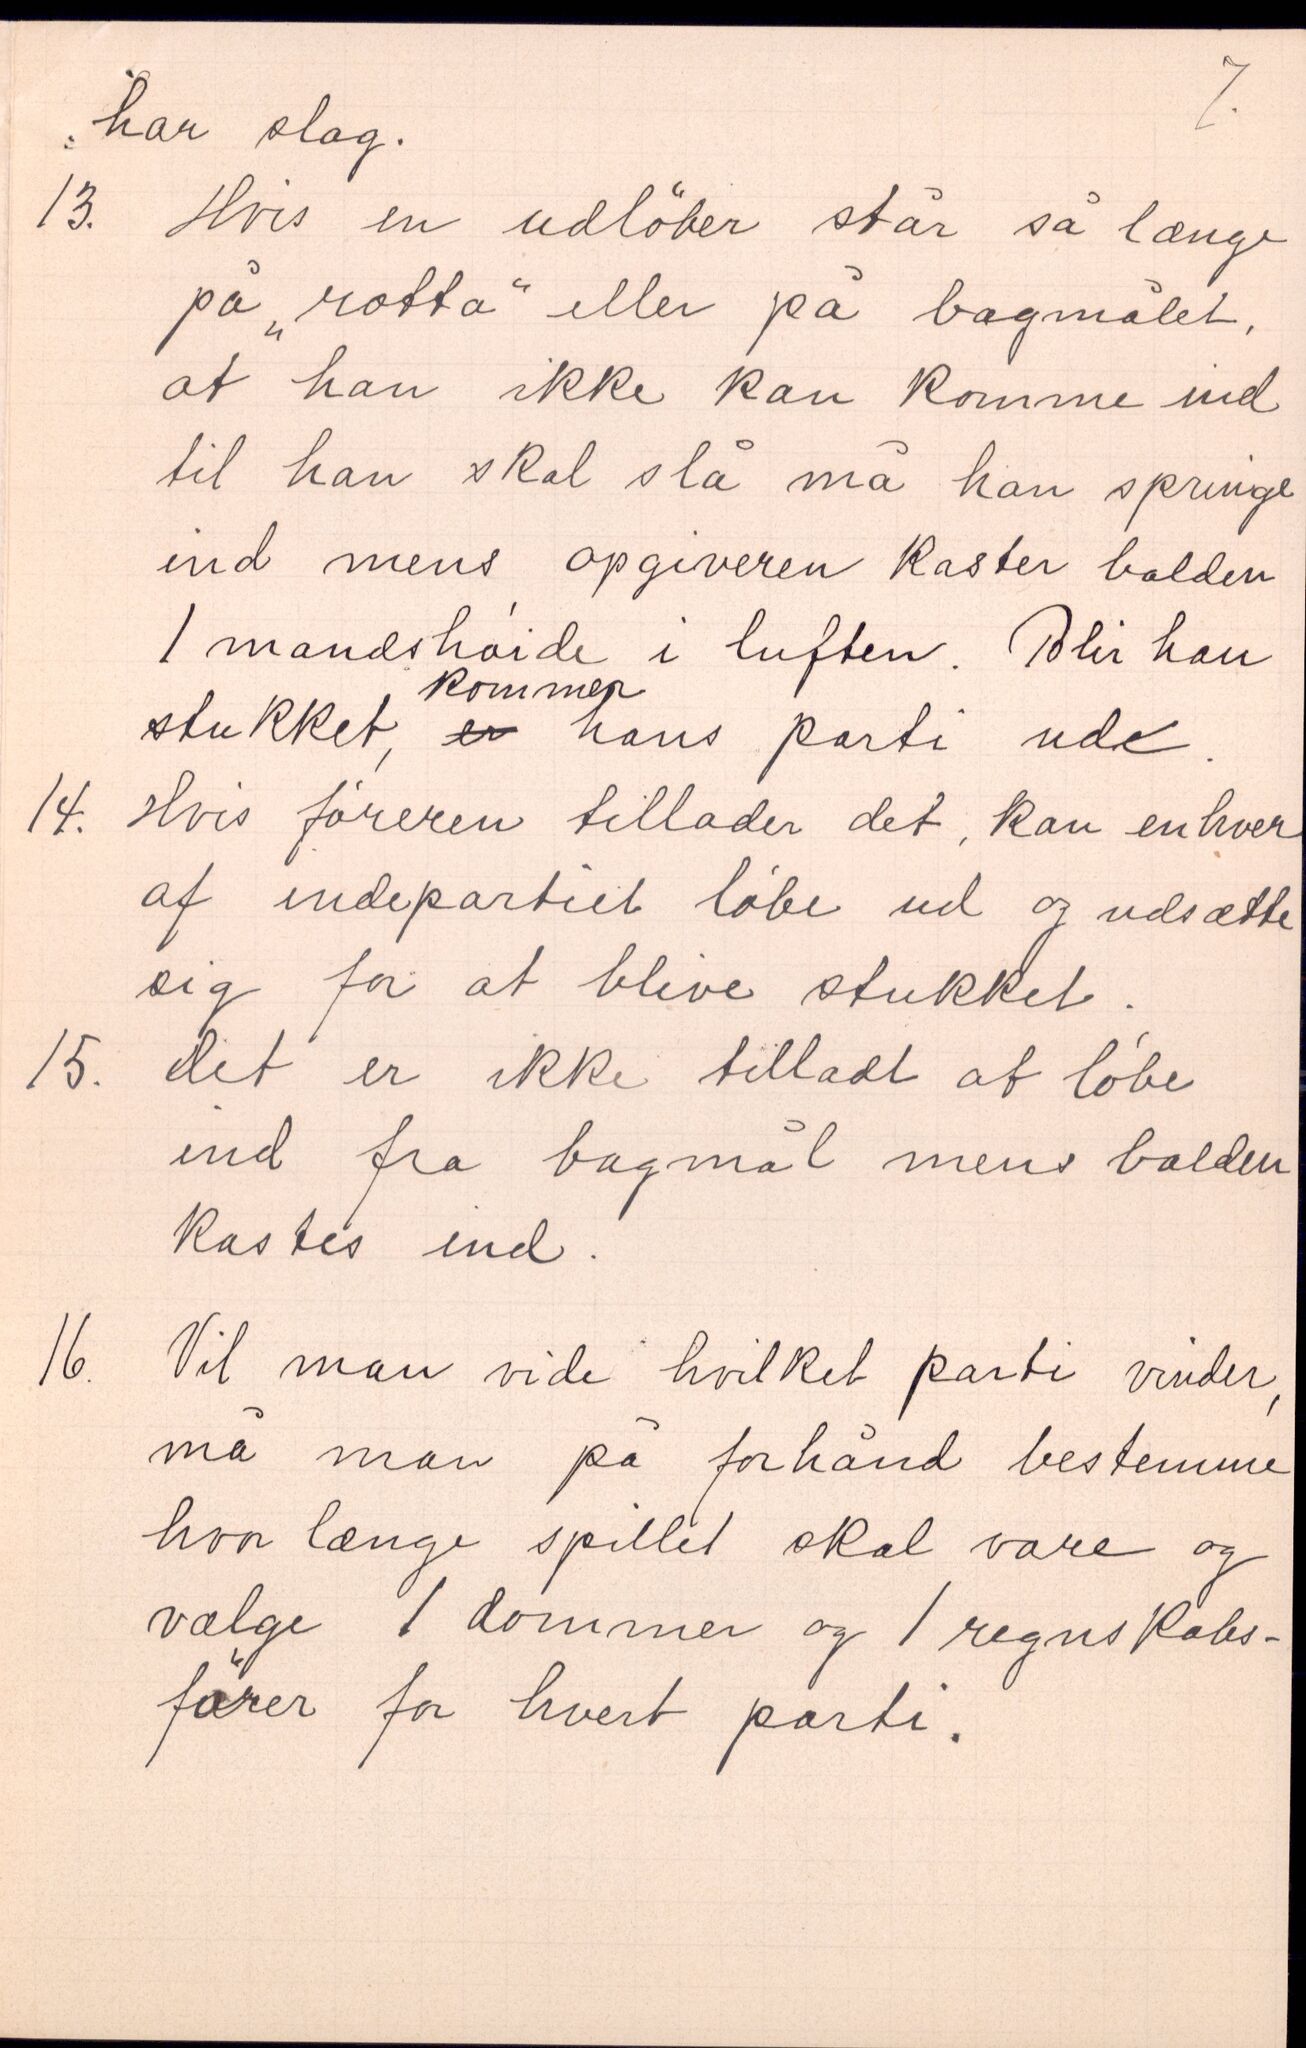 7.
har slag.
13. Hvis en udlöber står så længe
på „rotta“ eller på bagmålet,
at han ikke kan komme ind
til han skal slå må han springe
ind mens opgiveren kaster balden
1 mandshóide i luften. Blir han
kommer
stukket, er hans parti ude.
14. Hvis fóreren tillader det, kan enhver
af indepartiet lóbe ud og udsætte
sig for at blive stukket.
15. Det er ikke tilladt at lóbe
ind fra bagmål mens balden
kastes ind.
16. Vil man vide hvilket parti vinder,
må man på forhånd bestemme
hvor længe spillet skal vare og
vælge 1 dommer og 1 regnskabs-
förer for hvert parti.